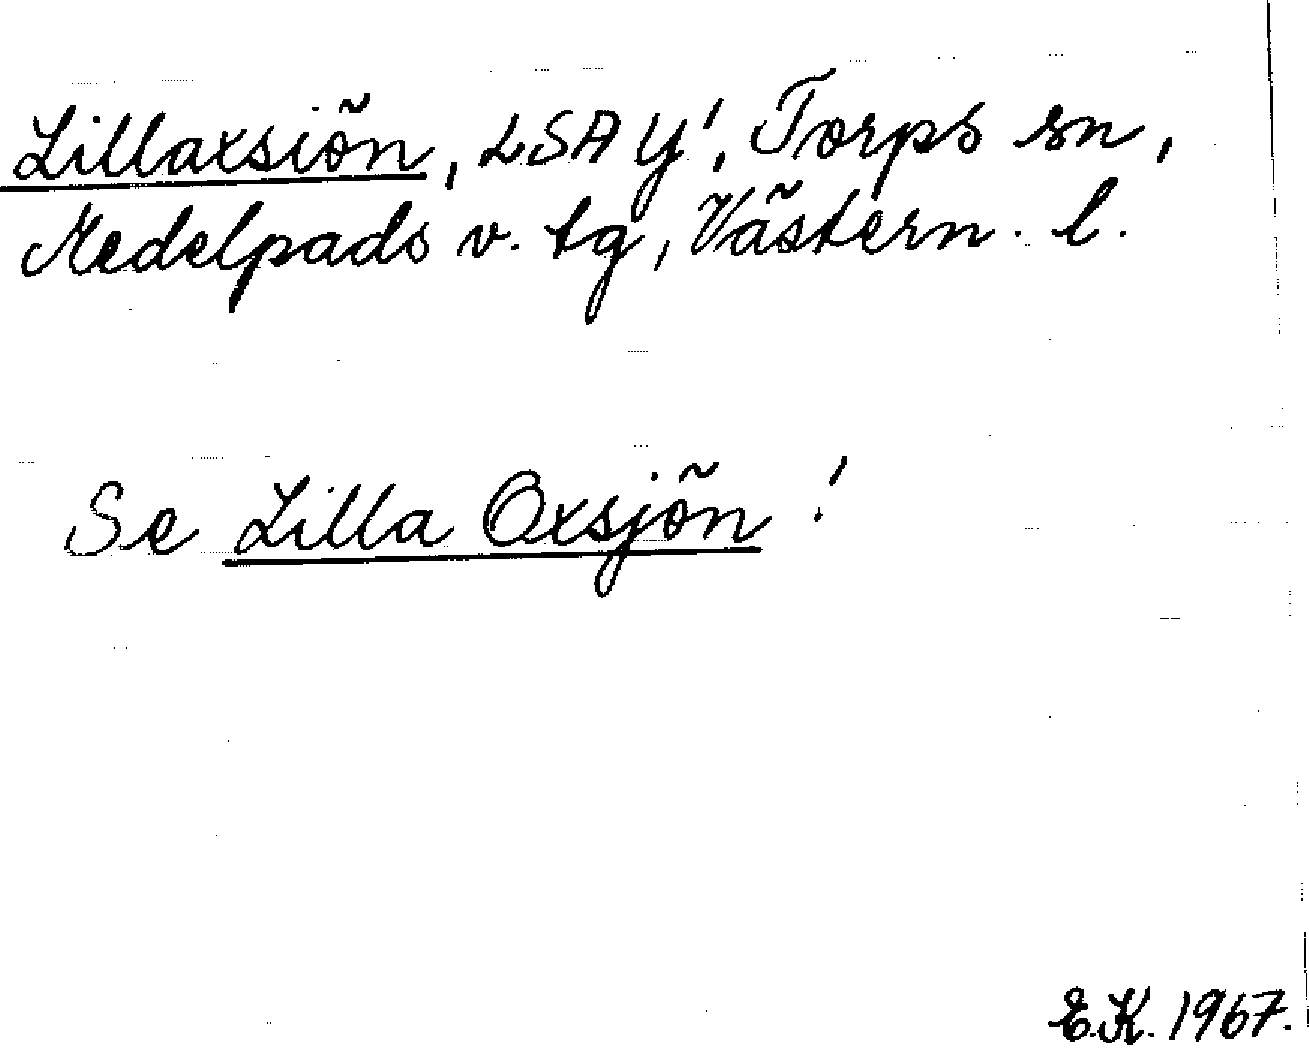 Lillaxsiön, LSA Y!, Torps sn,
Medelpads v. tg, Västern. l.
Se Lilla Oxsjön!
E.K. 1967.